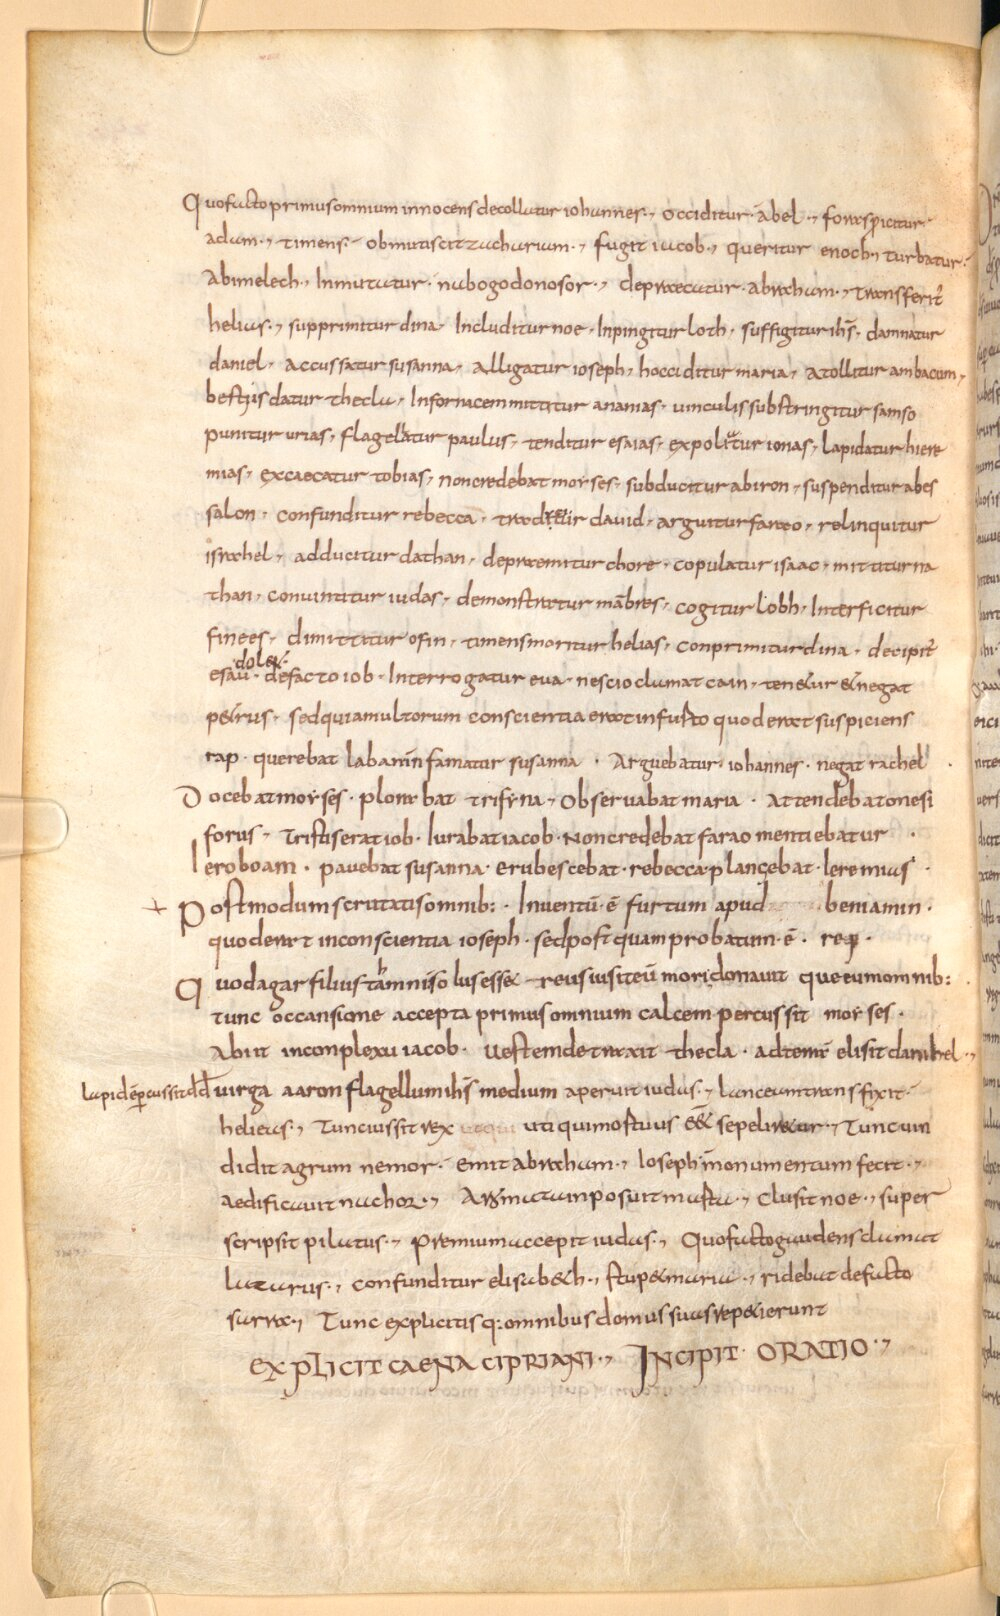 Quo facto primus omnium innocens decollatur iohannes·, occiditur· abel·, foras picitur·
adam·, timens· obmutiscit zacharium·, fugit iacob·, queritur enoch·, turbatur·
Abimelech·, Inmutatur· nabogodonosor·, depraecatur· abraham·, transferit̄
helias·, supprimitur dina· Includitur noe· Inpingitur loth· suffigitur ih̄s· damnatur
daniel· accussatur susanna, alligatur ioseph, hocciditur maria, atollitur ambacum,
bestiis datur thecla, In fornacem mittitur ananias· uinculis substringitur samso
punitur urias, flagellatur paulus, tenditur esaias, expoliatur ionas, lapidatur hiere
mias, excaecatur tobias, non credebat moyses· subducitur abiron, suspenditur abes
salon· confunditur rebecca· david· arguitur farao, relinquitur
israhel, adducitur dathan, depraemitur chore· copulatur isaac· mittitur na
than, conuincitur iudas, demonstratur mābres, cogitur lobh, Interficitur
finees· dimittitur ofin, timens moritur helias, conprimitur dina, decipit̄
dolet·
esau· defacto iob· Interrogatur eua· nescio clamat cain, ten&ur & negat
p&rus, sed quia multorum conscientia erat in fusto quod erat suspiciens
rap· querebat laban infamatur susanna · Arguebatur· iohannes· negat rachel ·
Docebat moyses· plorabat trifyna, Obseruabat maria · attendebat onesi
forus, tristis erat iob· Iurabat iacob· Non credebat farao mentiebatur ·
Ieroboam · pauebat susanna· erubescebat· rebecca· plangebat· Ieremias ·
+ Postmodum scrutatis omnib:· Inuentū· ē furtum apud beniamin·
quod erat in conscientia ioseph· sed postquam probatum· ē· req·
Quod agar filius tam nisolus ess& reus iusit eū mori donauit que eum omnib:
tunc occansione accepta primus omnium calcem percussit moyses·
Abiit in conplexu iacob· uestem detraxit thecla· ad terrā elisit danihel·,
lapidē percussit dd̄ uirga aaron flagellum ih̄s medium aperuit iudas·, lanceam transfixit·
helieas·, Tunc iussit rex uti qui mortuus ess& sepeliretur·, Tunc uin
didit agrum nemor· emit abraham·, Ioseph monumentum fecit·,
aedificauit nachor·, Armatum posuit nusta·, Clusit noe·, super
scripsit pilatus·, premium accepit iudas·, Quo facto gaudens clamat
lazarus·, confunditur elisab&h·, stup& maria·, ridebat defacto
sarra·, Tunc explicitis q: omnibus domus suas rep&ierunt
EXPLICIT CAENA CIPRIANI·, INCIPIT· ORATIO·,